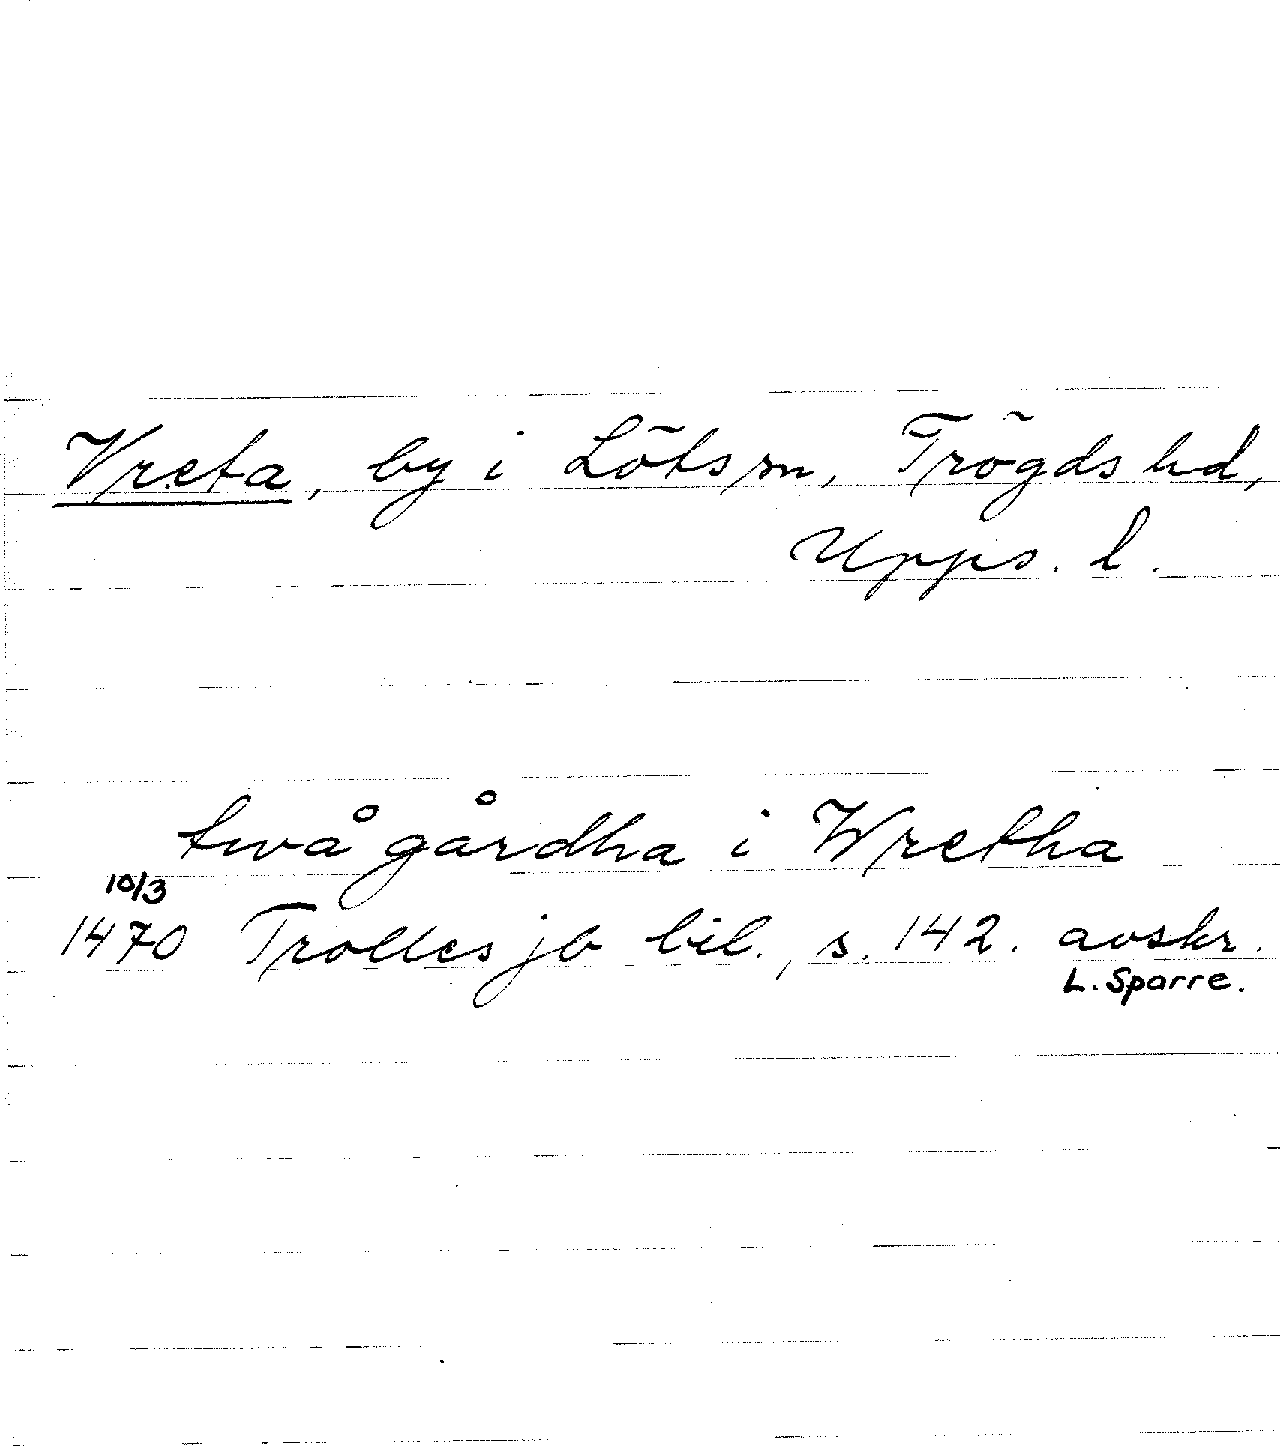 Vreta, by i Löts sn, Trögds hd,
Upps. l.
twå gårdha i Wretha
10/3
1470 Trolles jb bil., s. 142. avskr.
L. Sparre.